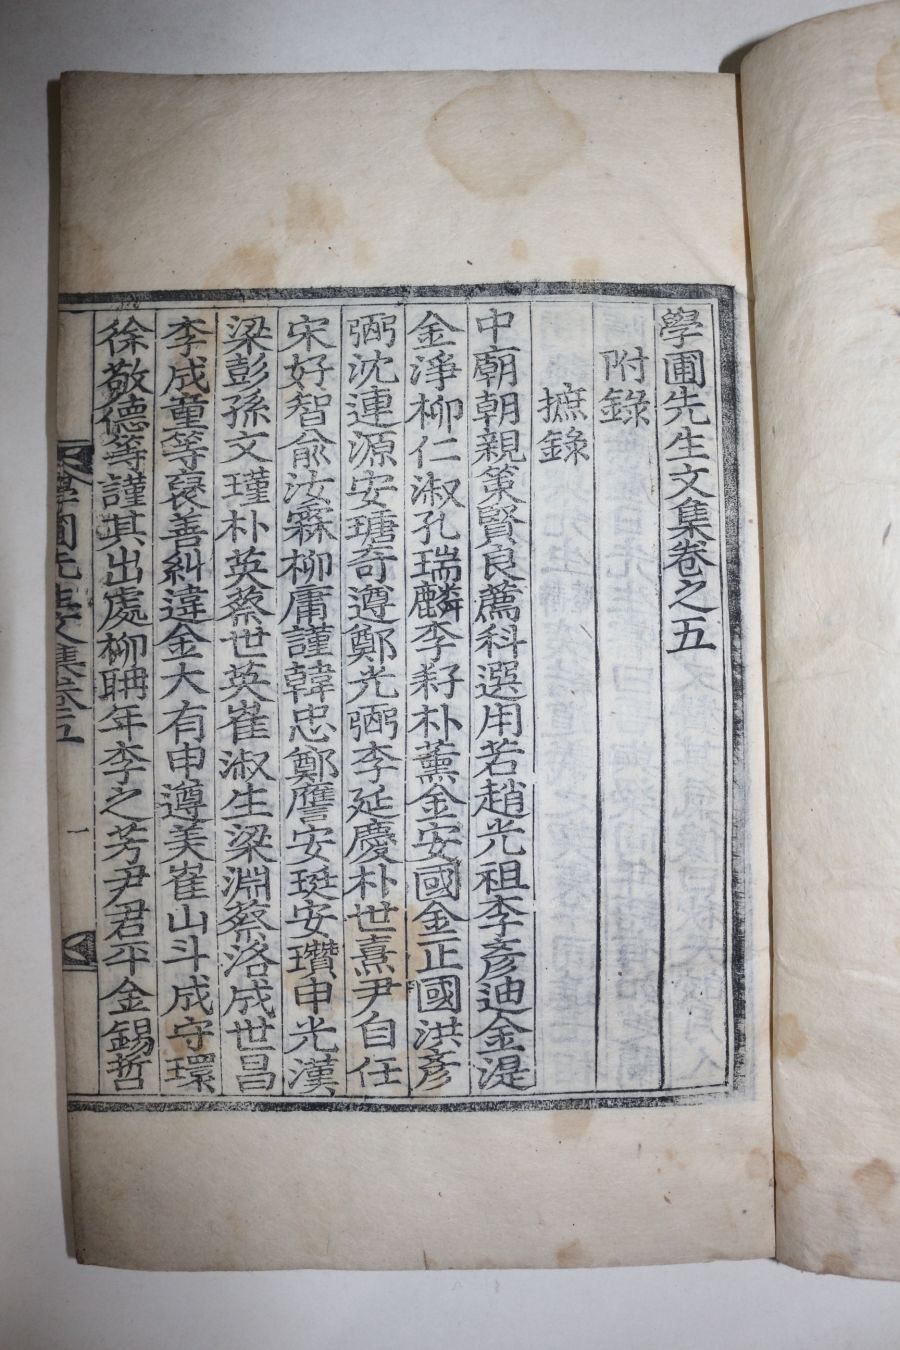 學圃先生文集卷之五
附錄
摭錄
中廟朝親策賢良薦科選用若趙光祖李彥迪金湜
金淨柳仁淑孔瑞麟李耔朴薰金安國金正國洪彥
弼沈連源安瑭奇遵鄭光弼李延慶朴世熹尹自任
宋好智兪汝霖柳庸謹韓忠鄭譍安珽安瓚申光漢
梁彭孫文瑾朴英蔡世英崔淑生梁淵蔡洛成世昌
李成童等褒善糾違金大有申遵美崔山斗成守環
徐敬德等謹其出處柳聃年李之芳尹君平金錫哲
學圃先生文集卷五
一